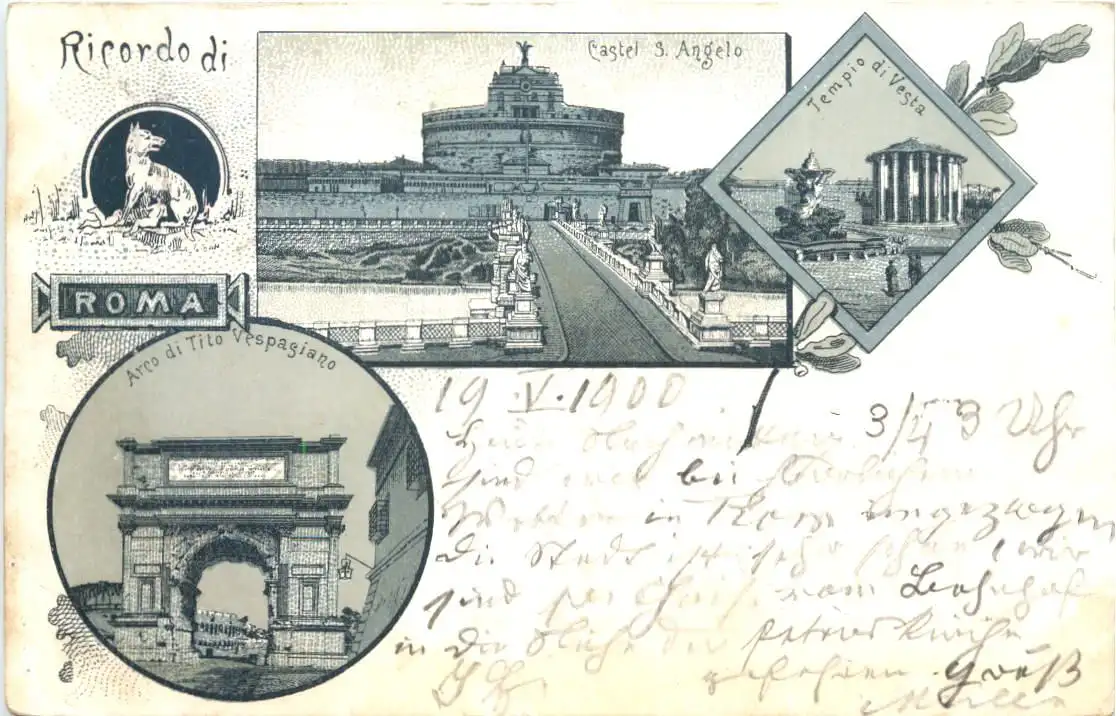 Ricordo di
ROMA
Castel S. Angelo
Tempio di Vesta
Arco di Tito Vespasiano
19.V.1900
3/4 3 Uhr
sind bei
in Rom eingezogen
die Stadt ist sehr schön, wir
sind per vom Bahnhof
in die Nähe der Peters Kirche
gefahren. Gruß